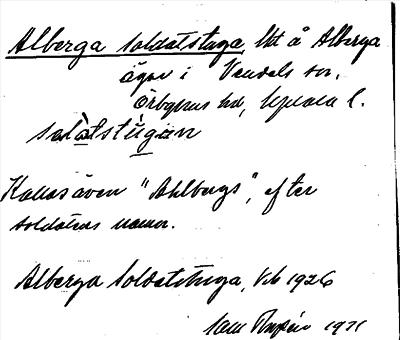 Alberga soldatstuga, bst å Alberga
ägor i Vendels sn,
Örbyhus hd, Uppsala l.
sɑlàtstùgɑn
Kallas även "Ahlbergs", efter
soldatens namn.
Alberga Soldatstuga, Vb 1926
1971